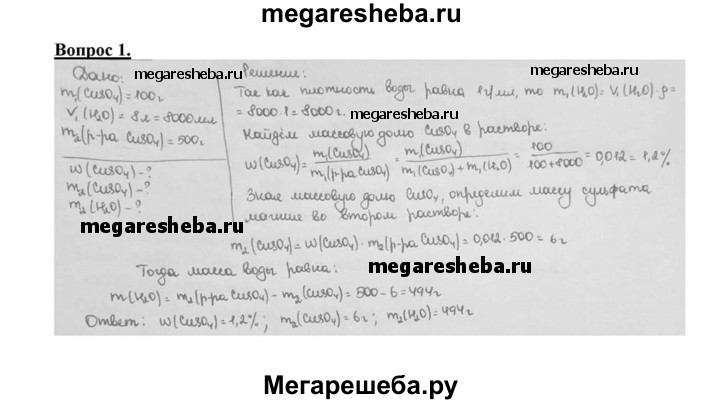 megaresheba.ru
Вопрос 1.
Дано:
m₁(CuSO₄)=100г
V₁(H₂O)= 8л=8000мл
m₂(р-ра CuSO₄)=500г
w(CuSO₄)-?
m₂(CuSO₄)-?
m₂(H₂O)-?
megaresheba.ru
megaresheba.ru
Решение:
Так как плотность воды равна 1г/мл, то m₁(H₂O)=V₁(H₂O)·ρ=
=8000·1=8000г.
megaresheba.ru
Найдём массовую долю CuSO₄ в растворе:
w(CuSO₄)= m₁(CuSO₄)/m₁(р-ра CuSO₄) = m₁(CuSO₄)/m₁(CuSO₄)+m₁(H₂O) = 100/100+8000 =0,012=1,2%
Зная массовую долю CuSO₄, определим массу сульфата
во втором растворе:
m₂(CuSO₄)=w(CuSO₄)·m₂(р-ра CuSO₄)=0,012·500=6г
Тогда масса воды равна:
megaresheba.ru
m(H₂O)=m₂(р-ра CuSO₄)-m₂(CuSO₄)=500-6=494г
Ответ: w(CuSO₄)=1,2%; m₂(CuSO₄)=6г; m₂(H₂O)=494г
Мегарешеба.ру